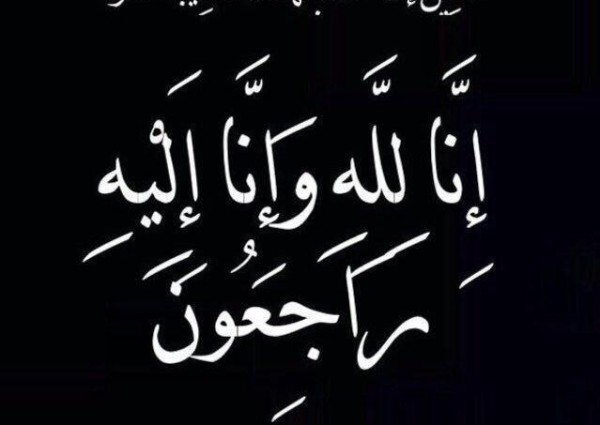 إِنَّا للَّه وَإِنَّا إِلَيْهِ
رَاجِعُونَ